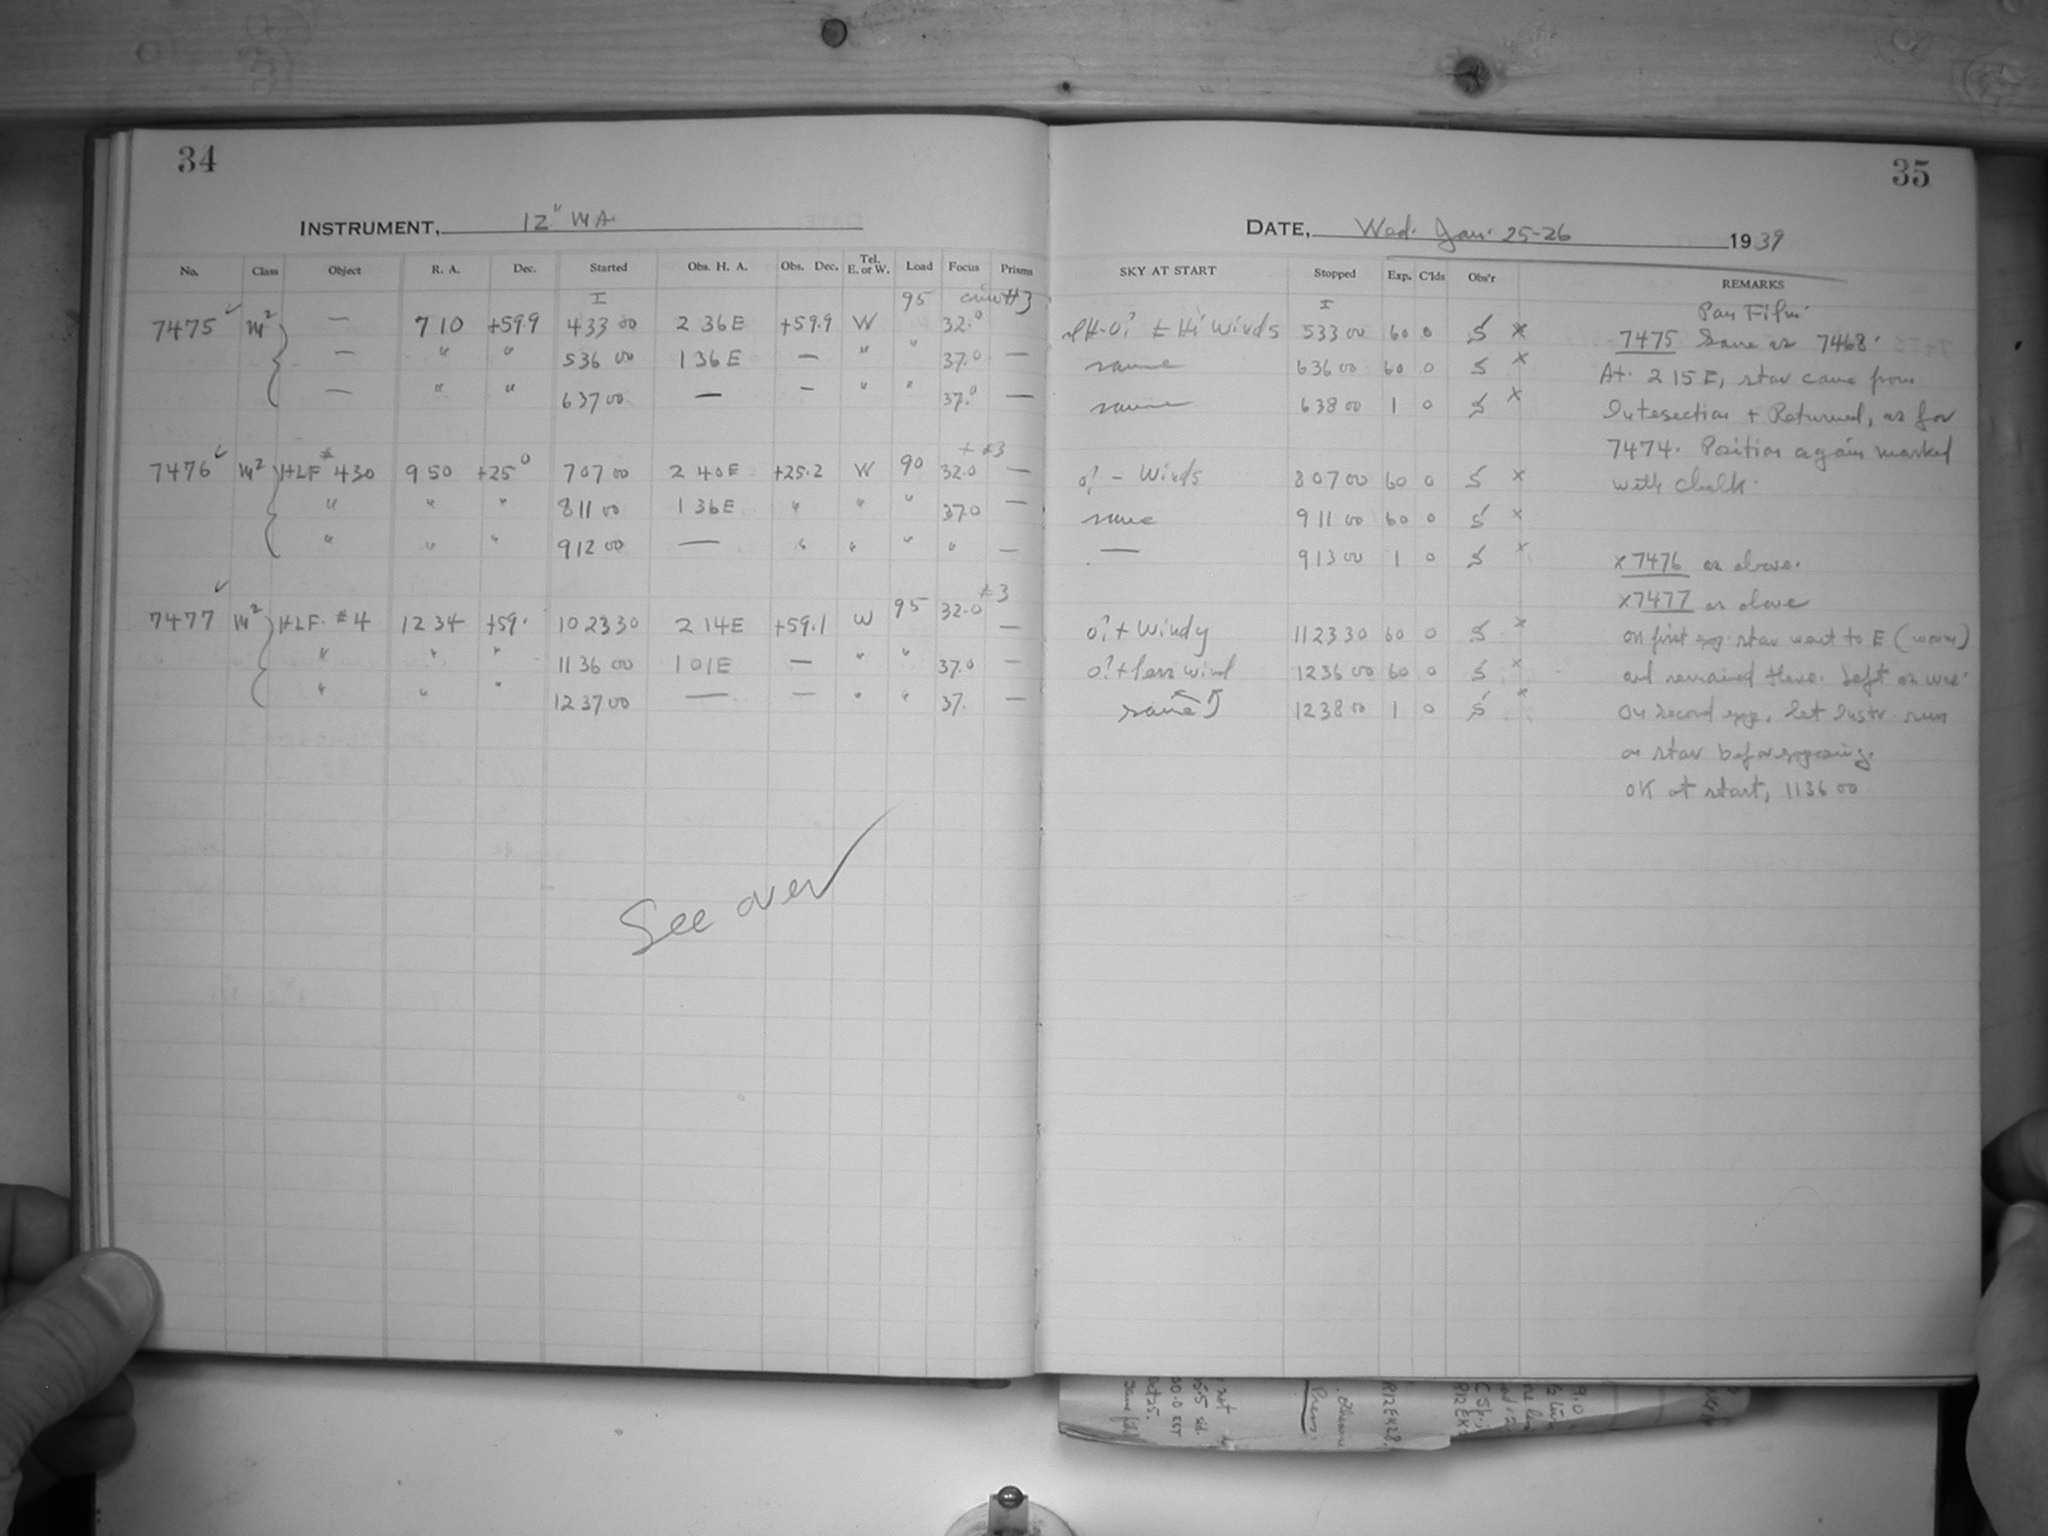 34
INSTRUMENT, 12" MA.
No. Class Object R. A. Dec. Started Obs. H. A. Obs. Dec. Tel. E. or W. Load Focus Prisms
I 95 #3
7475 ✓ M² — 7 10 +59.9 4 33 00 2 36 E +59.9 W 32.0
— " " 5 36 00 1 36 E — " " 37.0 —
— " " 6 37 00 — — " " 37.0 —
#3
7476 ✓ M² HLF # 430 9 50 +25° 7 07 00 2 40 E +25.2 W 90 32.0 —
" " " 8 11 00 1 36 E " " " 37.0 —
" " " 9 12 00 — " " " " —
#3
7477 ✓ M² HLF. #4 12 34 +59. 10 23 30 2 14 E +59.1 W 95 32.0 —
" " " 11 36 00 1 01 E — " " 37.0 —
" " " 12 37 00 — — " " 37. —
See over
35
DATE, Wed. Jan. 25-26 1939
SKY AT START Stopped Exp. C'lds Obs'r REMARKS
I Pan Film.
± Hi Winds 5 33 00 60 0 S x 7475 Same as 7468.
same 6 36 00 60 0 S x At. 2 15 E, star came from
same 6 38 00 1 0 S x Intesection + Returned, as for
7474. Position again marked
0? - Winds 8 07 00 60 0 S x with chalk.
same 9 11 00 60 0 S x
— 9 13 00 1 0 S x x 7476 as above.
x 7477 as above
0? + Windy 11 23 30 60 0 S x on first exp star went to E (worm)
0? + less wind 12 36 00 60 0 S x and remained there. Left as was.
same 12 38 00 1 0 S x On second exp. let Instr. run
on star before exposing.
OK at start, 11 36 00